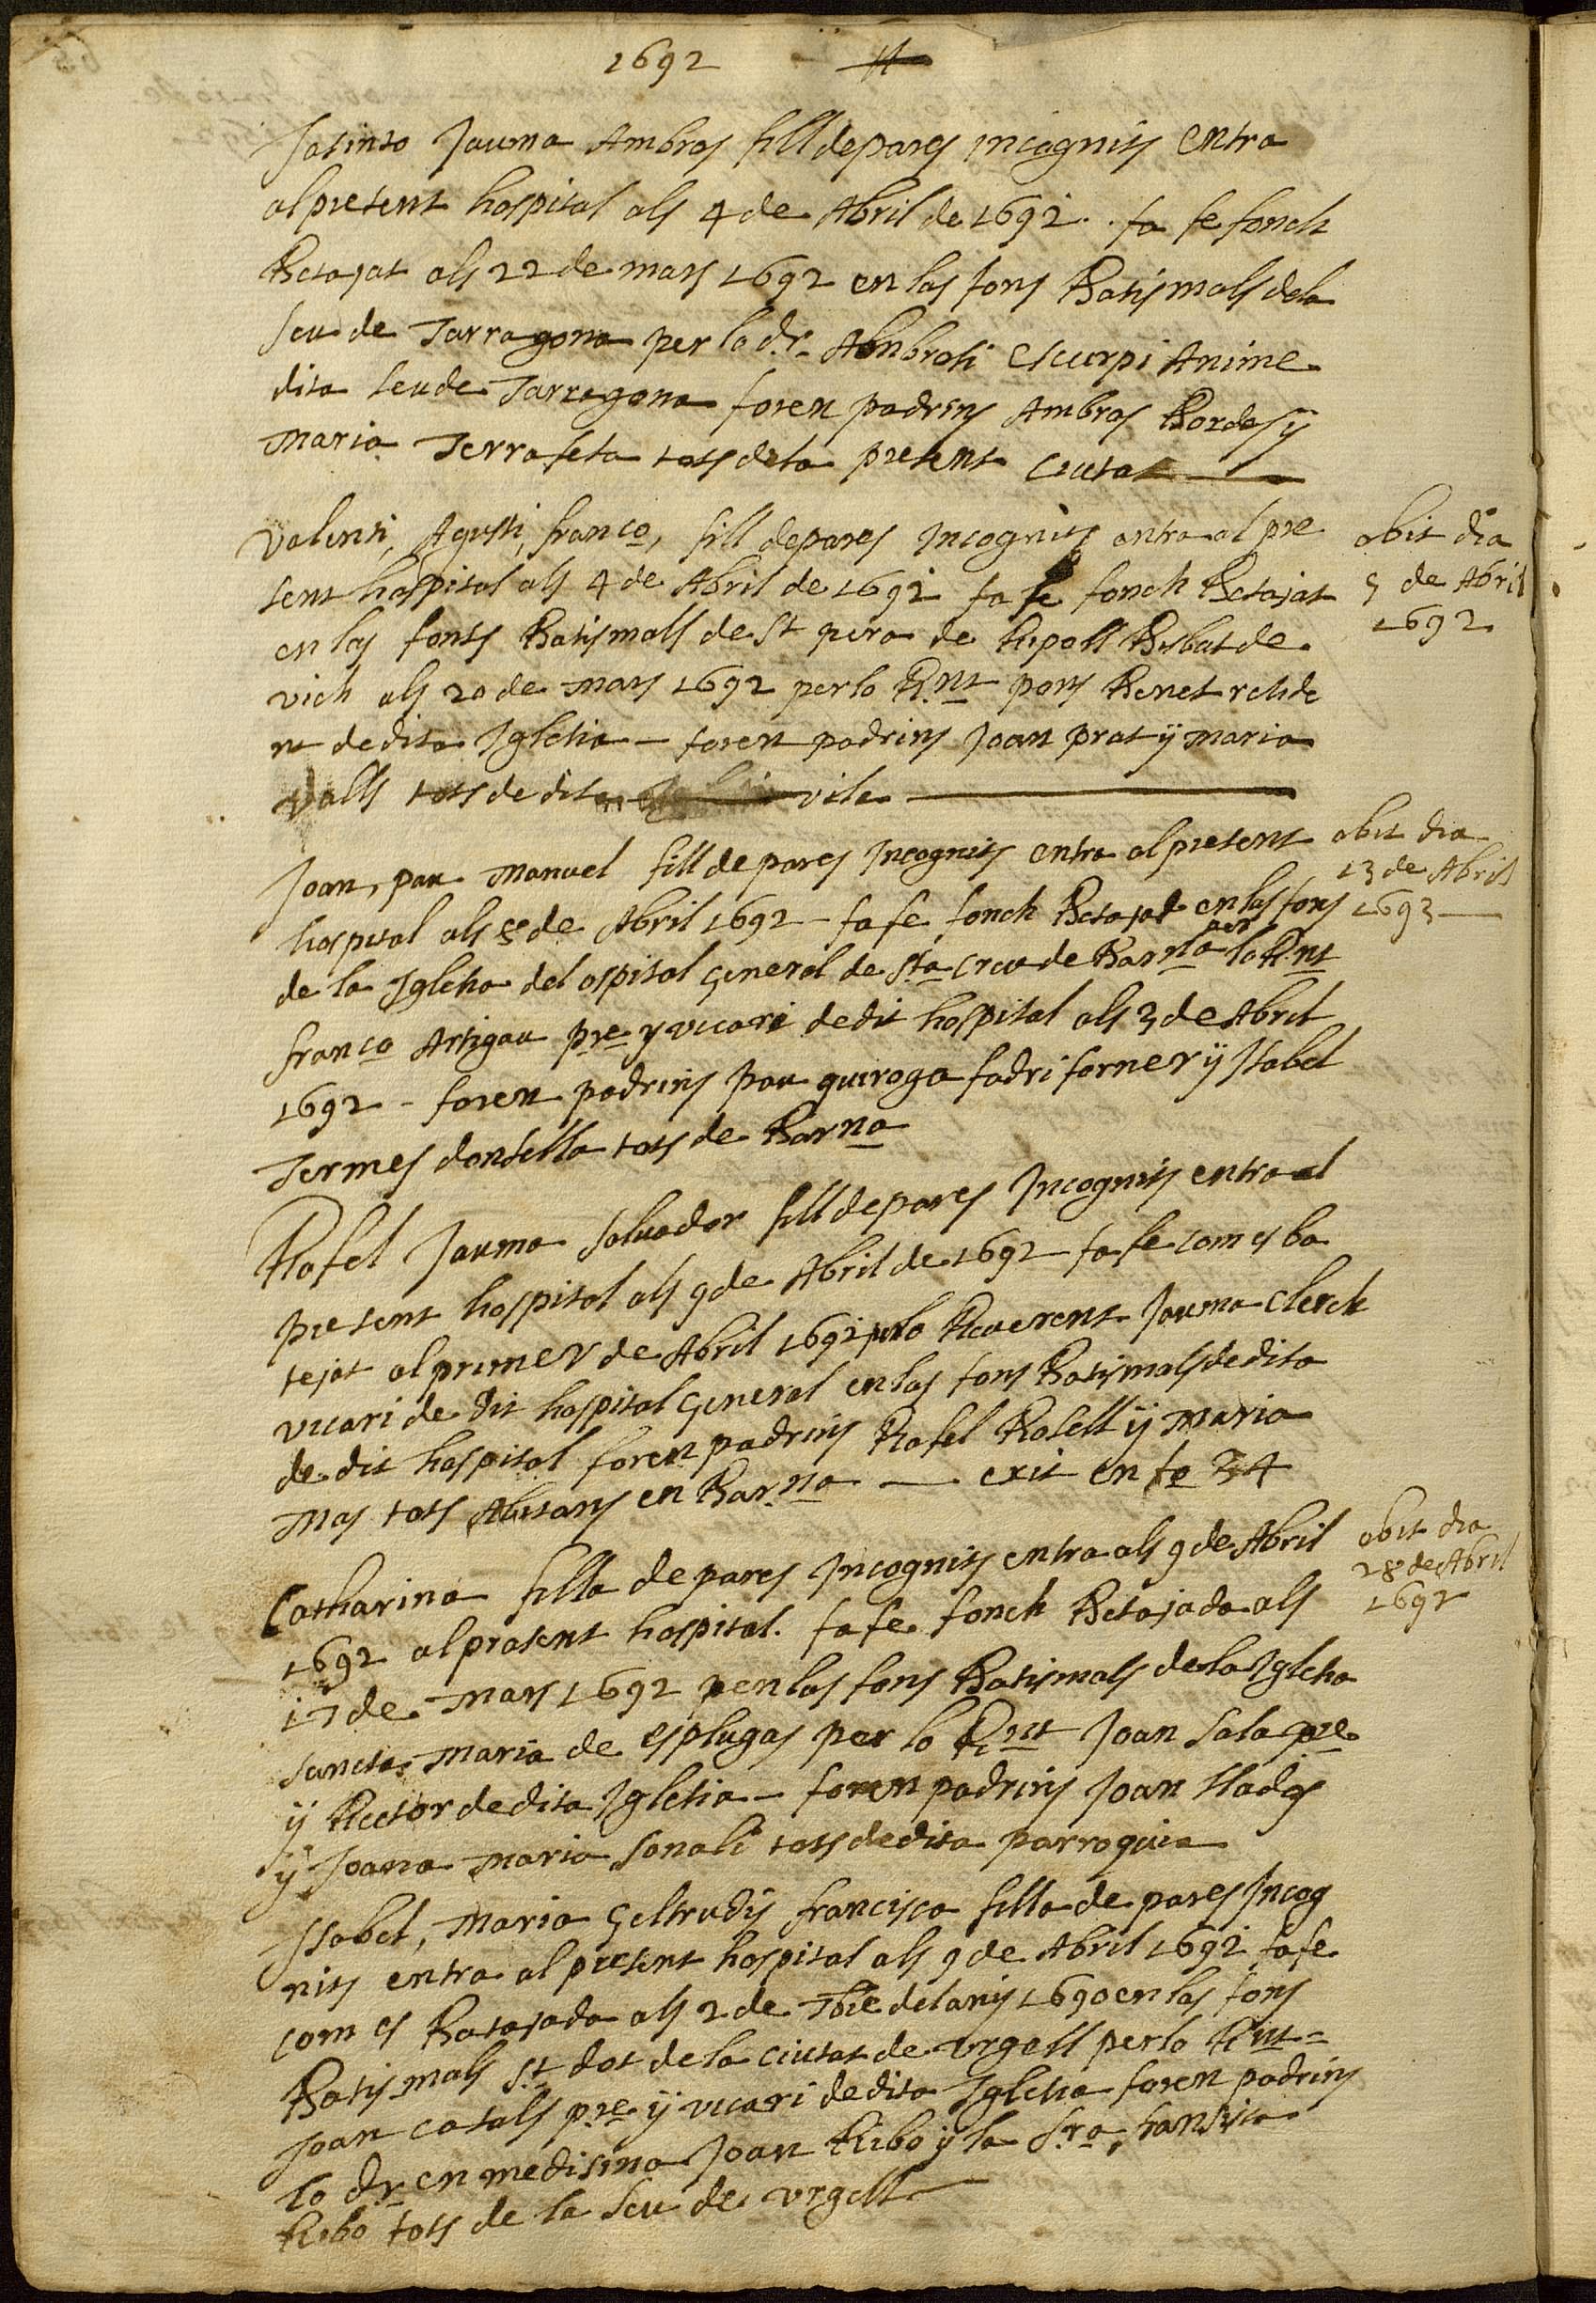 1692
Jasinto Jauma Ambros fill de pares incognits entra
al present hospital als 4 de Abril de 1692. fa fe fonch
Betajat als 22 de mars 1692 en las fons Batismals dela
seu de Tarragona per lo dr. Ambrosi Escurpi
dita seu de Tarragona foren padrins Ambros Bordas ÿ
Maria Terraseta tots de la present ciutat
Valenti, Agusti, franco, fill de pares Incognits entra al pre
sent hospital als 4 de Abril de 1692 fa fe fonch Betajat
en las fonts Batismals de St pera de Ripoll Bisbat de
vich als 20 de mars 1692 per lo Rnt pons Benet reside
nt de dita Iglesia - foren padrins Joan prat ÿ maria
valls tots de dita vila
obit dia
5 de Abril
1692
Joan, pau Manuel fill de pares Incognits entra al present
hospital als 8 de Abril 1692 - fa fe fonch Betajat en las fons
de la Iglesia del ospital General de Sta Creu de Barna per lo Rnt
franco Artigau pre y vicari de dit hospital als 3 de Abril
1692 - foren padrins Pau quiroga fadri forner ÿ Isabel
Termes donsella tots de Barna
obit dia
13 de Abril
1693
Rafel Jauma Saluador fill de pares Incognits entra al
present hospital als 9 de Abril de 1692 fa fe com es ba
tejat al primer de Abril 1692 per lo Reuerent Jauma Clerch
vicari de dit hospital General en las fons Batismals de dita
de dit hospital foren padrins Rafel Rosell ÿ maria
Mas tots Abitans en Barna - exit en fo 34
Catharina filla de pares Incognits entra als 9 de Abril
1692 al prasent hospital. fa fe fonch Betajada als
17 de mars 1692 p en las fons Batismals de la Iglesia
sancta maria de esplugas per lo Rnt Joan Sala pre
ÿ Rector de dita Iglesia - foren padrins Joan
ÿ Joana maria tots de dita parroquia
obit dia
28 de Abril
1692
Isabel, Maria Geltrudis francisca filla de pares Incog
nits entra al present hospital als 9 de Abril 1692 fa fe
com es Batajada als 2 de 7bre del any 1690 en las fons
Batismals St dot de la ciutat de vrgell per lo Rnt
Joan catals pre ÿ vicari de dita Iglesia foren padrins
lo dr en medisina Joan Ribo ÿ la Sra
Ribo tots de la seu de vrgell